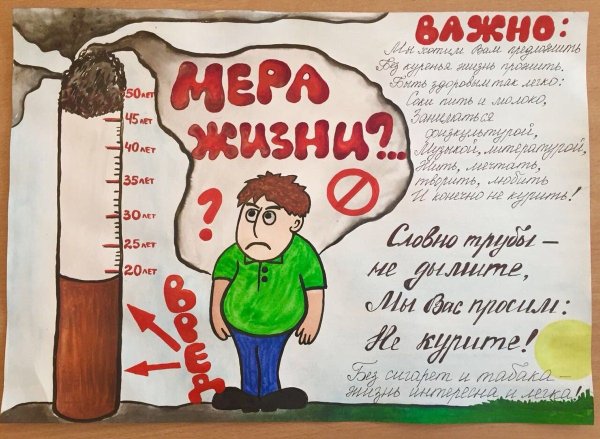 МЕРА
ЖИЗНИ?...
50 ЛЕТ
45 ЛЕТ
40 ЛЕТ
35 ЛЕТ
30 ЛЕТ
25 ЛЕТ
20 ЛЕТ
?
ВРЕД
ВАЖНО:
Мы хотим Вам предложить
Без куренья жизнь прожить.
Быть здоровым так легко:
Соки пить и молоко,
Заниматься
физкультурой,
Музыкой, литературой,
Жить, мечтать,
творить, любить
И конечно не курить!
Словно трубы –
не дымите,
Мы Вас просим:
Не курите!
Без сигарет и табака –
жизнь интересна и легка!